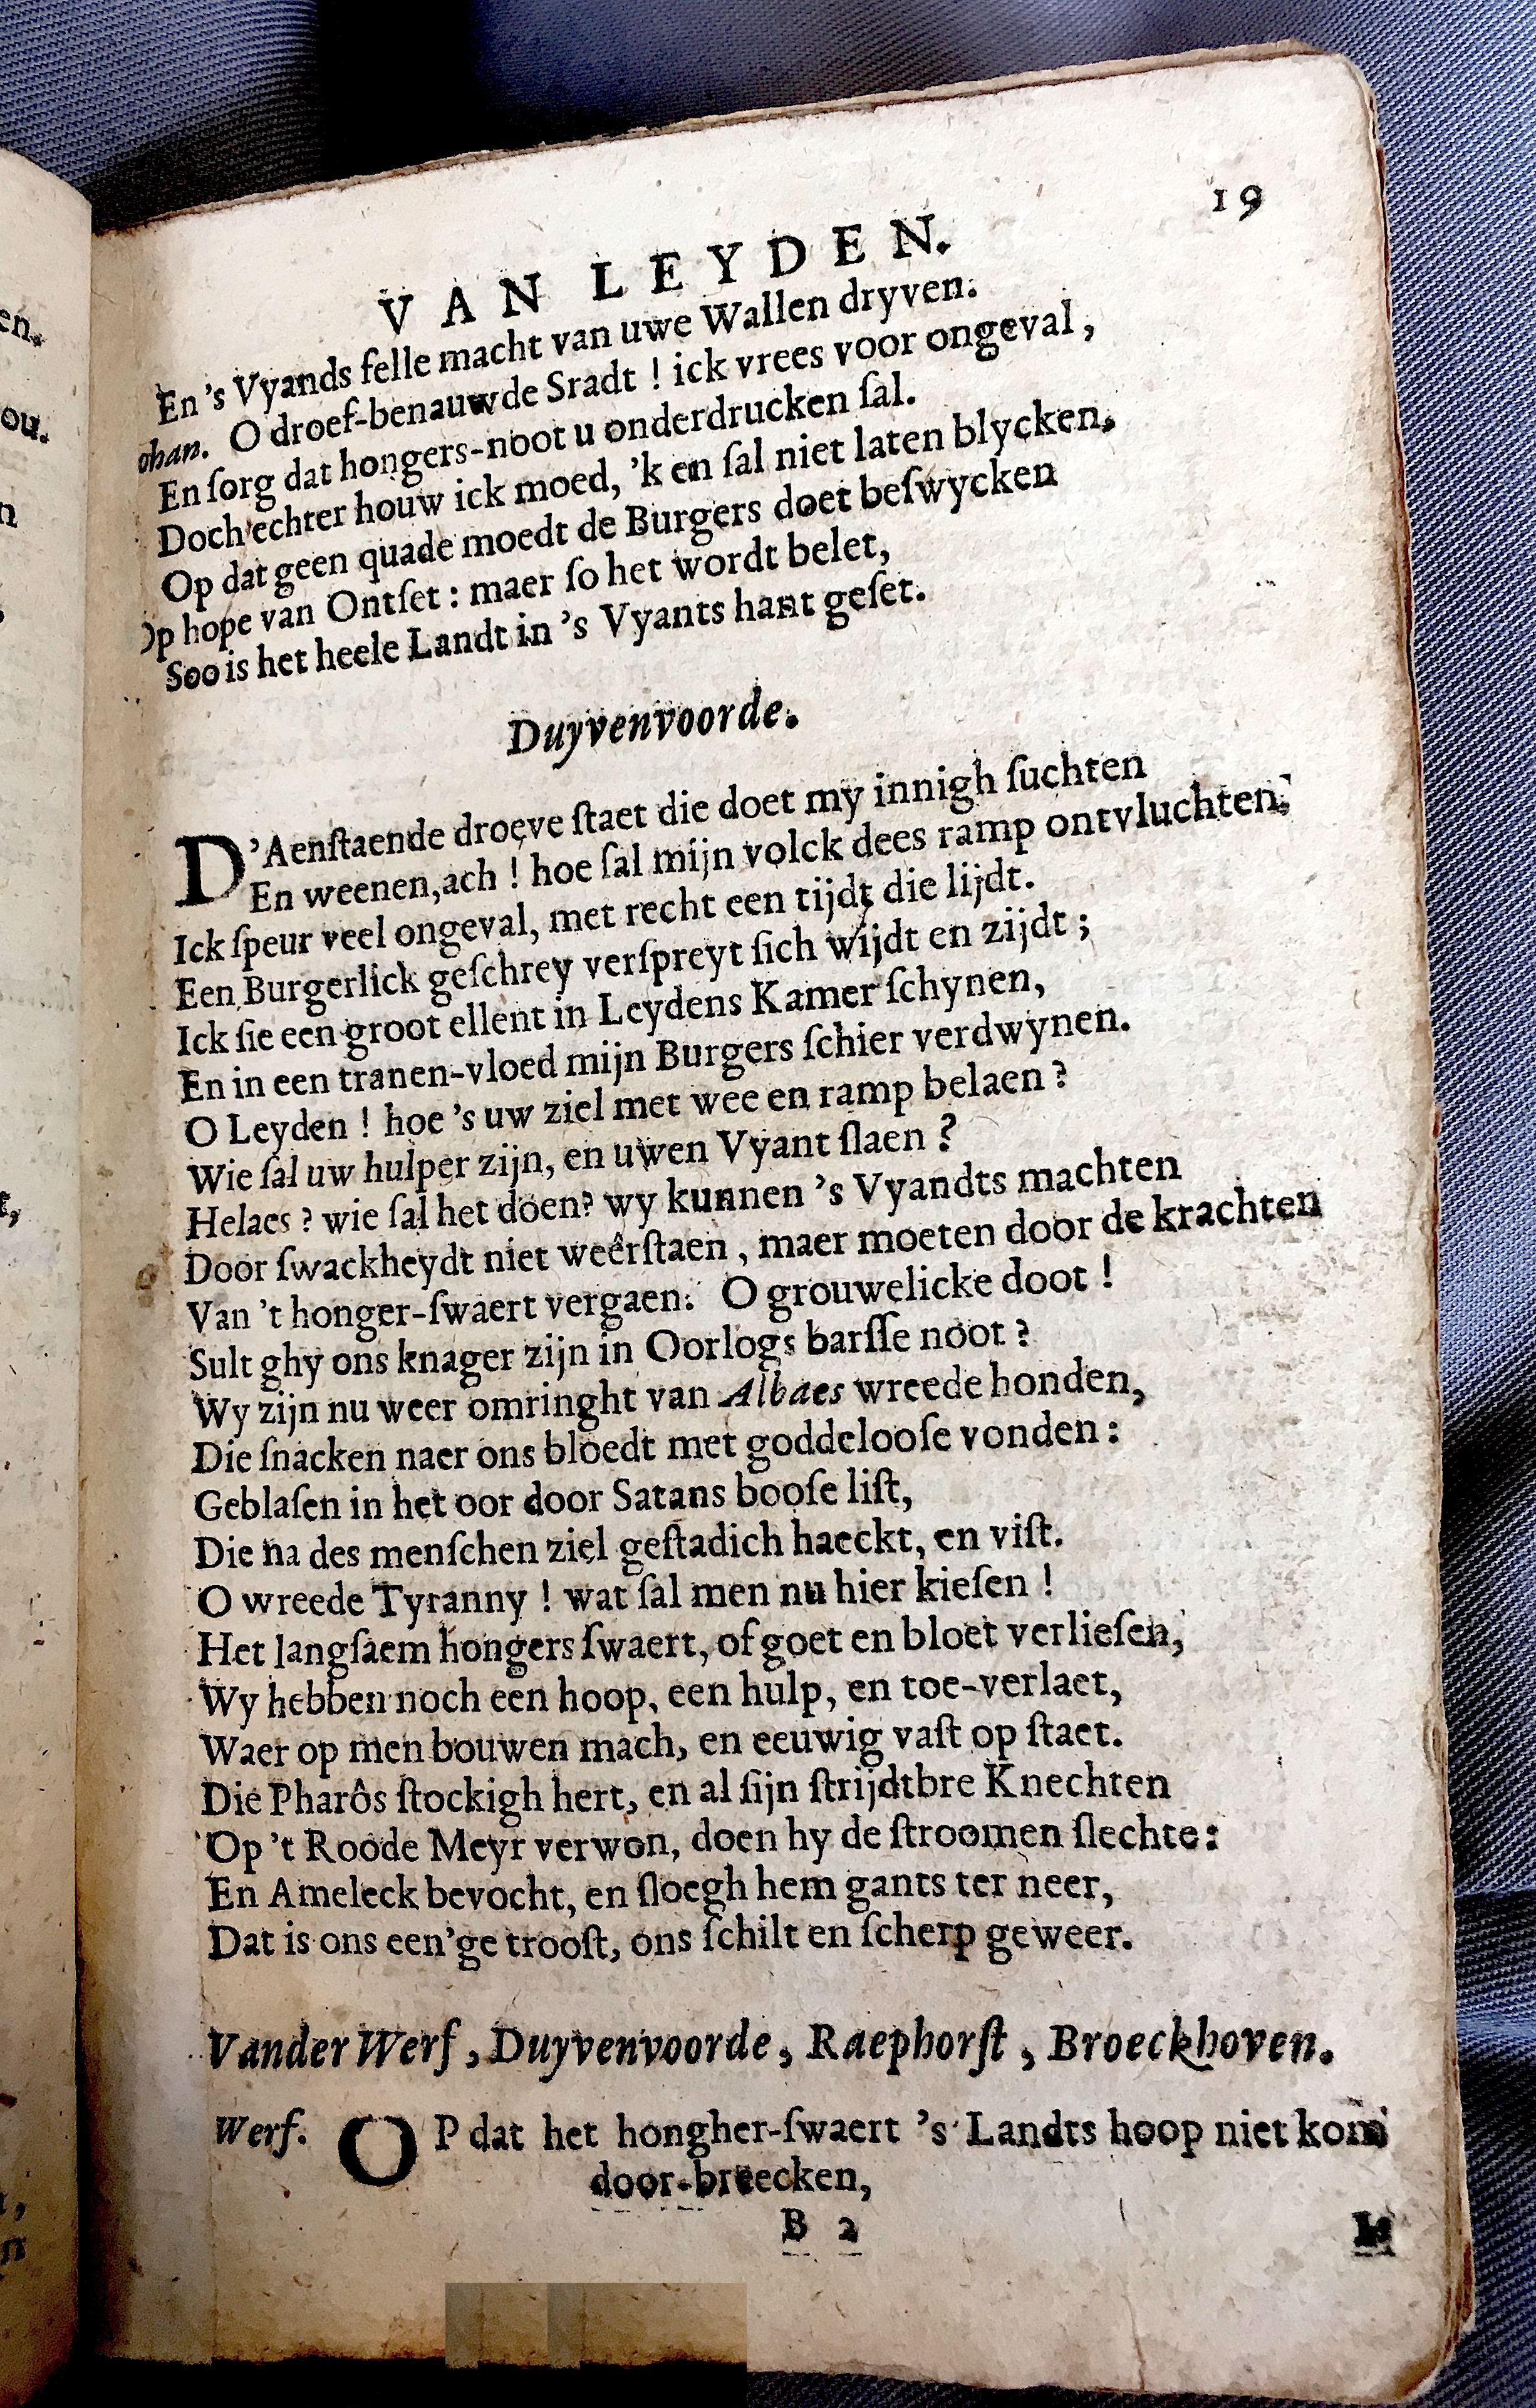 19
VAN LEYDEN.
En 's Vyands felle macht van uwe Wallen dryven.
ohan. O droef-benauwde Sradt ! ick vrees voor ongeval,
En ſorg dat hongers-noot u onderdrucken ſal.
Doch echter houw ick moed, 'k en ſal niet laten blycken,
Op dat geen quade moedt de Burgers doet beſwycken
Op hope van Ontſet : maer ſo het wordt belet,
Soo is het heele Landt in 's Vyants hant geſet.
Duyvenvoorde.
D'Aenſtaende droeve ſtaet die doet my innigh ſuchten
En weenen, ach ! hoe ſal mijn volck dees ramp ontvluchten,
Ick ſpeur veel ongeval, met recht een tijdt die lijdt.
Een Burgerlick geſchrey verſpreyt ſich wijdt en zijdt ;
Ick ſie een groot ellent in Leydens Kamer ſchynen,
En in een tranen-vloed mijn Burgers ſchier verdwynen.
O Leyden ! hoe 's uw ziel met wee en ramp belaen ?
Wie ſal uw hulper zijn, en uwen Vyant ſlaen ?
Helaes ? wie ſal het doen? wy kunnen 's Vyandts machten
Door ſwackheydt niet weêrſtaen, maer moeten door de krachten
Van 't honger-ſwaert vergaen. O grouwelicke doot !
Sult ghy ons knager zijn in Oorlogs barſſe noot ?
Wy zijn nu weer omringht van Albaes wreede honden,
Die ſnacken naer ons bloedt met goddelooſe vonden :
Geblaſen in het oor door Satans booſe liſt,
Die na des menſchen ziel geſtadich haeckt, en viſt.
O wreede Tyranny ! wat ſal men nu hier kieſen !
Het langſaem hongers ſwaert, of goet en bloet verlieſen,
Wy hebben noch een hoop, een hulp, en toe-verlaet,
Waer op men bouwen mach, en eeuwig vaſt op ſtaet.
Die Pharôs ſtockigh hert, en al ſijn ſtrijdtbre Knechten
Op 't Roode Meyr verwon, doen hy de ſtroomen ſlechte:
En Ameleck bevocht, en ſloegh hem gants ter neer,
Dat is ons een'ge trooſt, ons ſchilt en ſcherp geweer.
Vander Werf, Duyvenvoorde, Raephorſt, Broeckhoven.
Werf. OP dat het hongher-ſwaert 's Landts hoop niet kom
door-breecken,
B 2